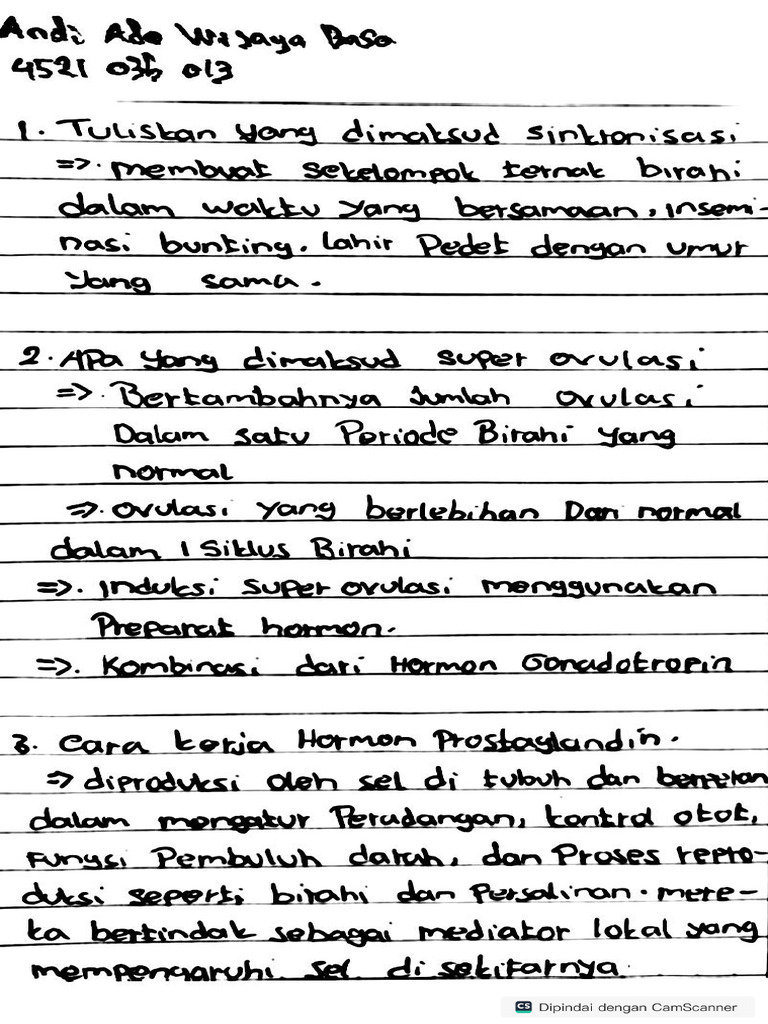 Andi Ade Wijaya Basa
4521 035 013
1. Tuliskan yang dimaksud sinkronisasi
=>. membuat sekelompok ternak birahi
dalam waktu yang bersamaan, insemi-
nasi bunting. lahir Pedet dengan umur
yang sama.
2. APa yang dimaksud super ovulasi
=>. Bertambahnya Jumlah ovulasi
Dalam satu Periode Birahi yang
normal
=>. ovulasi yang berlebihan Dari normal
dalam 1 Siklus Birahi
=>. Induksi super ovulasi menggunakan
Preparat hormon.
=>. Kombinasi dari Hormon Gonadotropin
3. Cara kerja Hormon Prostaglandin.
=> diproduksi oleh sel di tubuh dan berperan
dalam mengatur Peradangan, kontrol otot,
Fungsi Pembuluh darah, dan Proses repro-
duksi seperti birahi dan Persalinan. mere-
ka bertindak sebagai mediator lokal yang
mempengaruhi sel di sekitarnya.
CS Dipindai dengan CamScanner